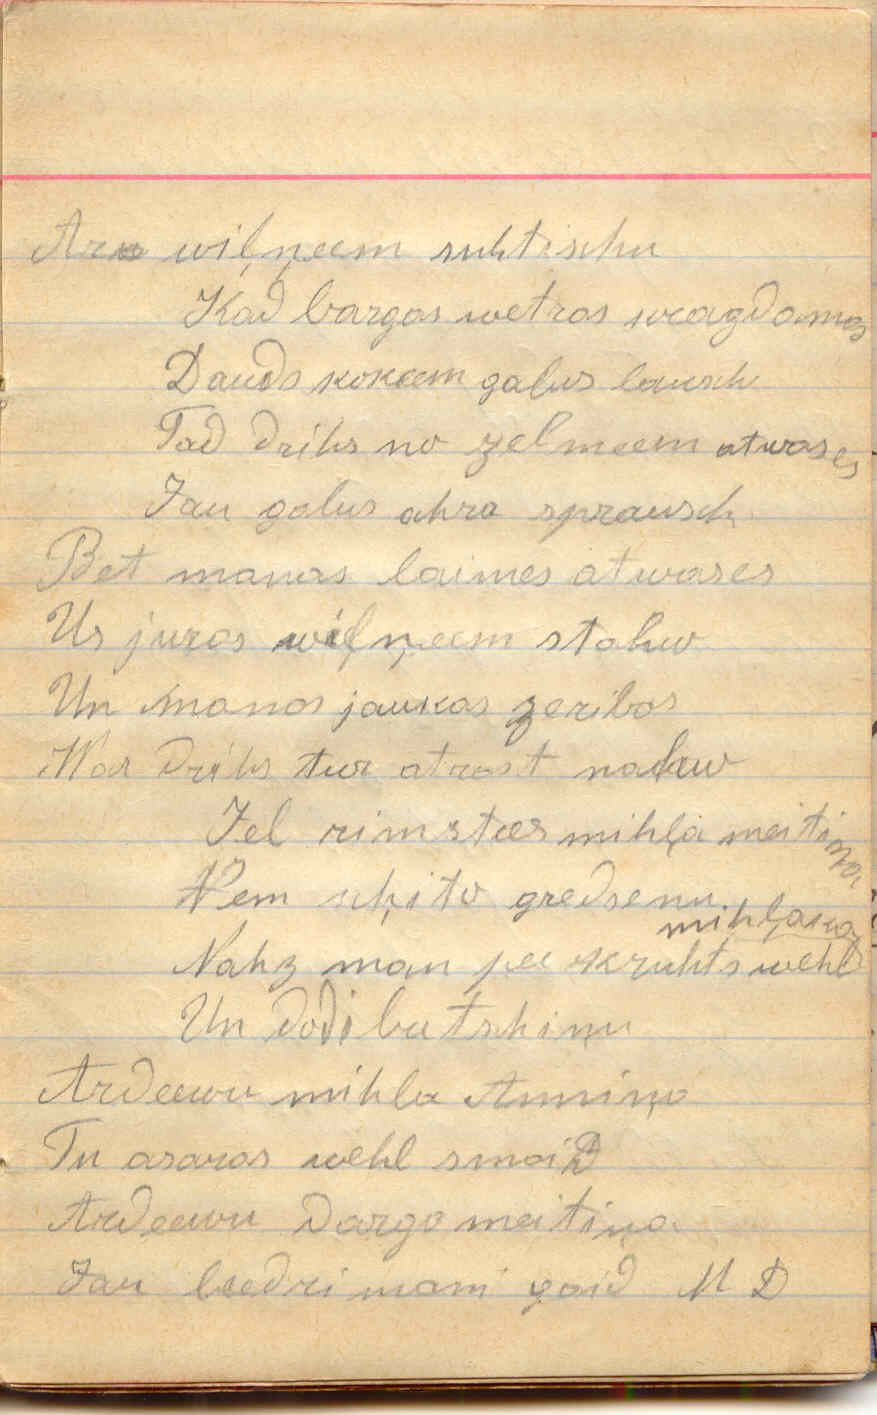 Ar wiļņeem suhtischu
Kad bargas wetras wragdamas
Dauds kokeem galus lausch
Tad drihs no zelmeem atwases
Jau galus ahra sprausch
Bet manas laimes atwases
Us juras wiļņeem stahw
Un manas jaukas zeribas
War drihs tur atrast nahw
Jel rimstees mihļa meitiņa
Ņem schito gredsenu
mihļaka
Nahz man pee kruhts wehl
Un dodi butschiņu
Ardeewu mihļa Anniņa
Tu asaras wehl smaid
Ardeewu darga meitiņa
Jau beedri mani gaid M D